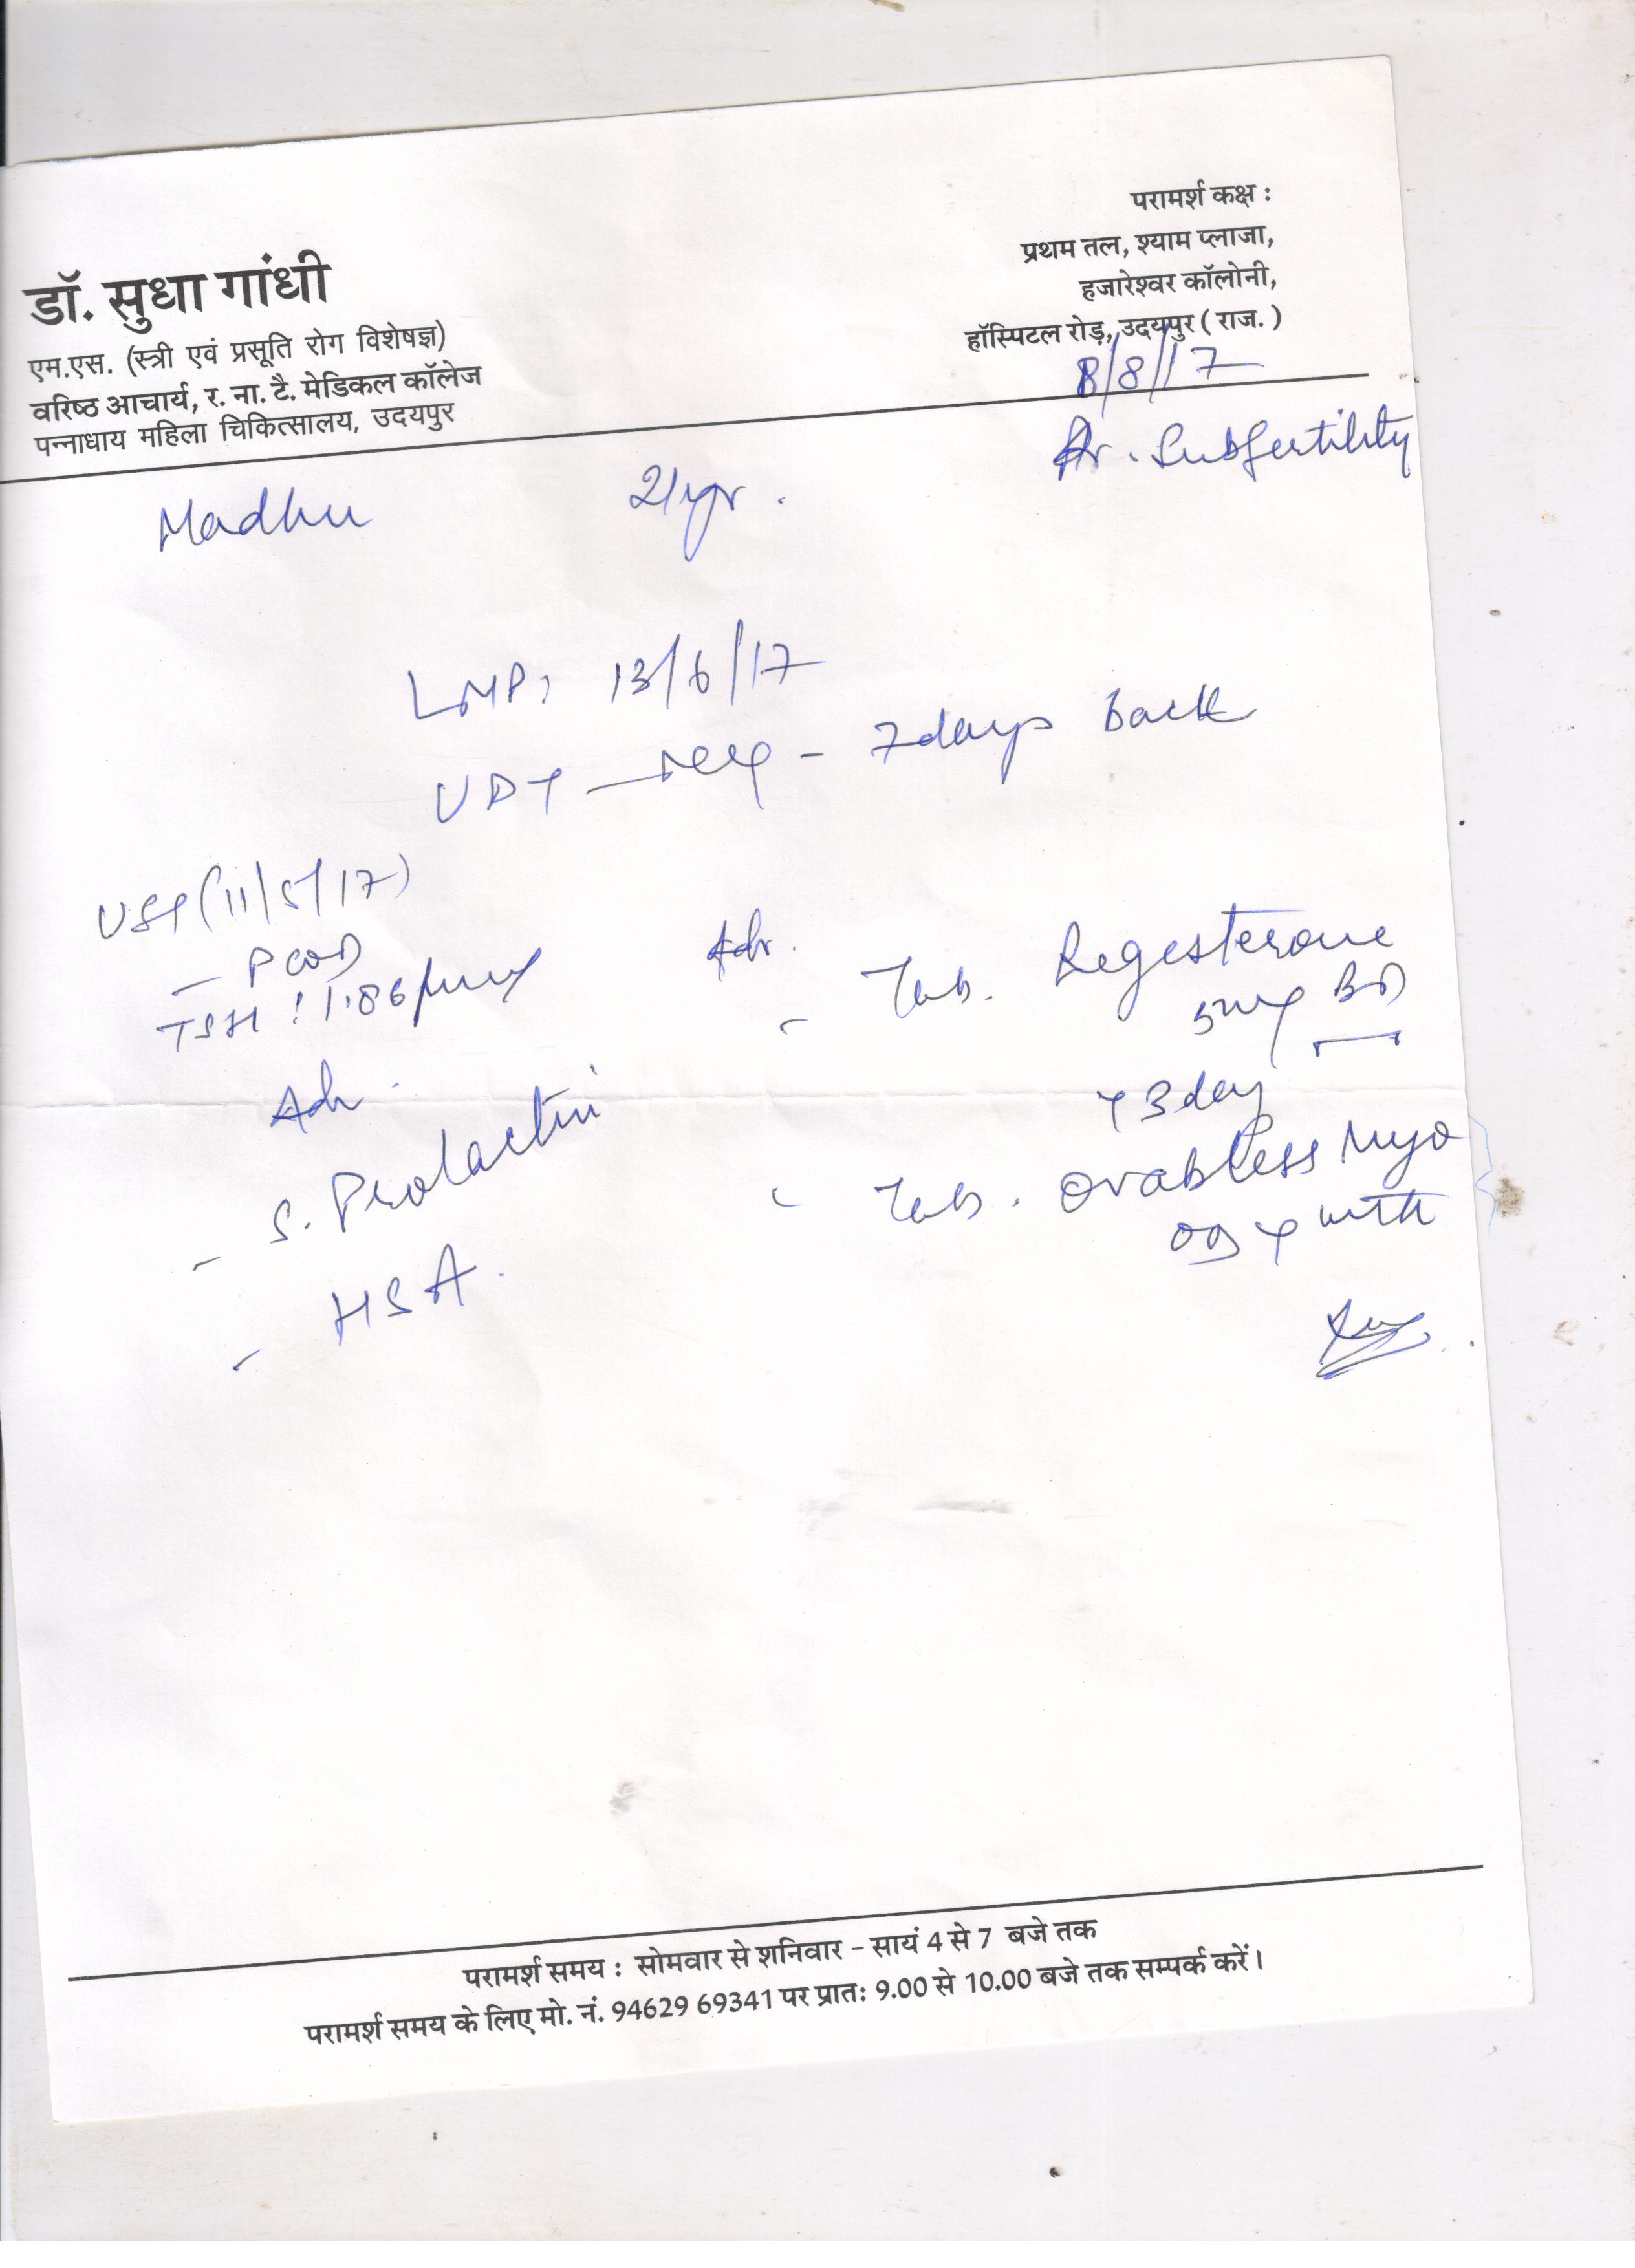 परामर्श कक्ष :
प्रथम तल, श्याम प्लाजा,
हजारेश्वर कॉलोनी,
हॉस्पिटल रोड़, उदयपुर ( राज. )
डॉ. सुधा गांधी
एम.एस. (स्त्री एवं प्रसूति रोग विशेषज्ञ)
वरिष्ठ आचार्य, र. ना. टै. मेडिकल कॉलेज
पन्नाधाय महिला चिकित्सालय, उदयपुर
8/8/17
Pr. Subfertility
Madhu 21yr.
LMP: 13/6/17
UPT - neg - 7days back
USG (11/5/17)
- PCOD
TSH : 1.86
Adv.
- S. Prolactin
- HSA.
Adv.
- Tab. Regesterone
5mg BD
x 3day
- Tab. Ovabless Myo
OD x mth
परामर्श समय : सोमवार से शनिवार – सायं 4 से 7 बजे तक
परामर्श समय के लिए मो. नं. 94629 69341 पर प्रातः 9.00 से 10.00 बजे तक सम्पर्क करें।